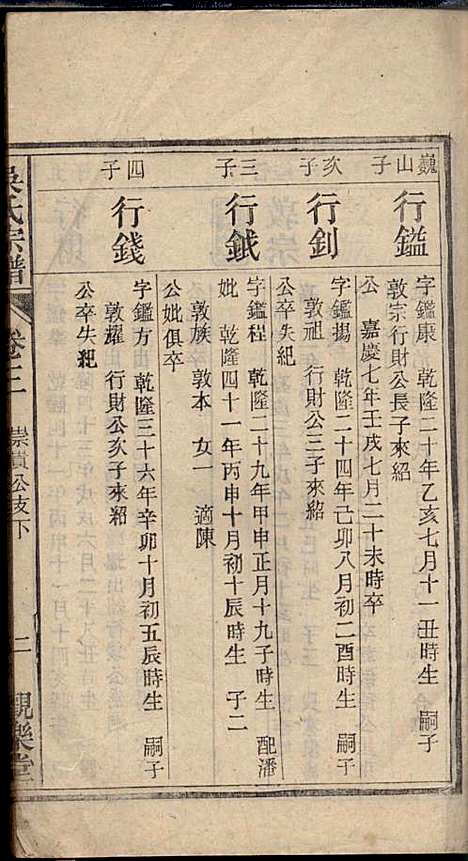 巍山子
行鎰
字鑑康 乾隆二十年乙亥七月十一丑時生 嗣子
敦宗行財公長子來紹
公 嘉慶七年壬戌七月二十未時卒
次子
行釗
字鑑揚 乾隆二十四年己卯八月初二酉時生 嗣子
敦祖 行財公三子來紹
公卒失紀
三子
行鉞
字鑑程 乾隆二十九年甲申正月十九子時生 配潘
妣 乾隆四十一年丙申十月初十辰時生 子二
敦族 敦本 女一 適陳
公妣俱卒
四子
行錢
字鑑方 乾隆三十六年辛卯十月初五辰時生 嗣子
敦耀 行財公次子來紹
公卒失紀
吳氏宗譜 卷三 崇貴公支下 二 觀樂堂